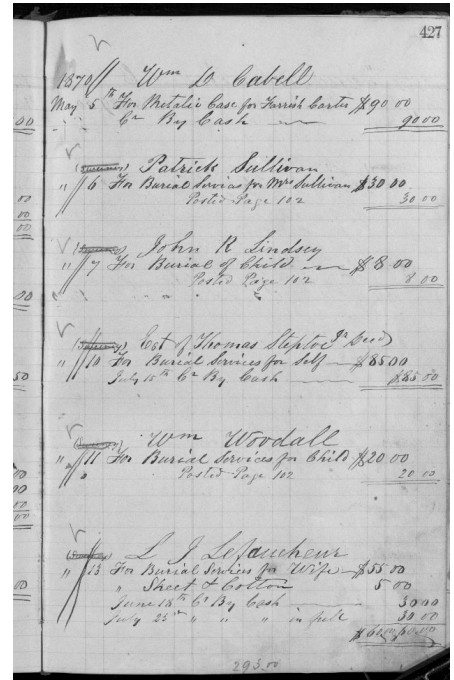 427
1870 Wm D Cabell
May 5th For Metalic Case for Farrish Carter $90 00
Cr By Cash 90 00
Patrick Sullivan
" 6 For Burial Services for Mrs Sullivan $30 00
Posted Page 102 30 00
John R Lindsey
" 7 For Burial of Child $8 00
Posted Page 102 8 00
Est of Thomas Steptoe Decd
" 10 For Burial Services for Self $85 00
July 15th Cr By Cash $85 00
Wm Woodall
" 11 For Burial Services for Child $20 00
Posted Page 102 20 00
L J Lefaucheur
" 13 For Burial Services for Wife $55 00
" Sheet & Cotton 5 00
June 18th Cr By Cash 30 00
July 23rd " " " in full 30 00
$60 00 60 00
293.00